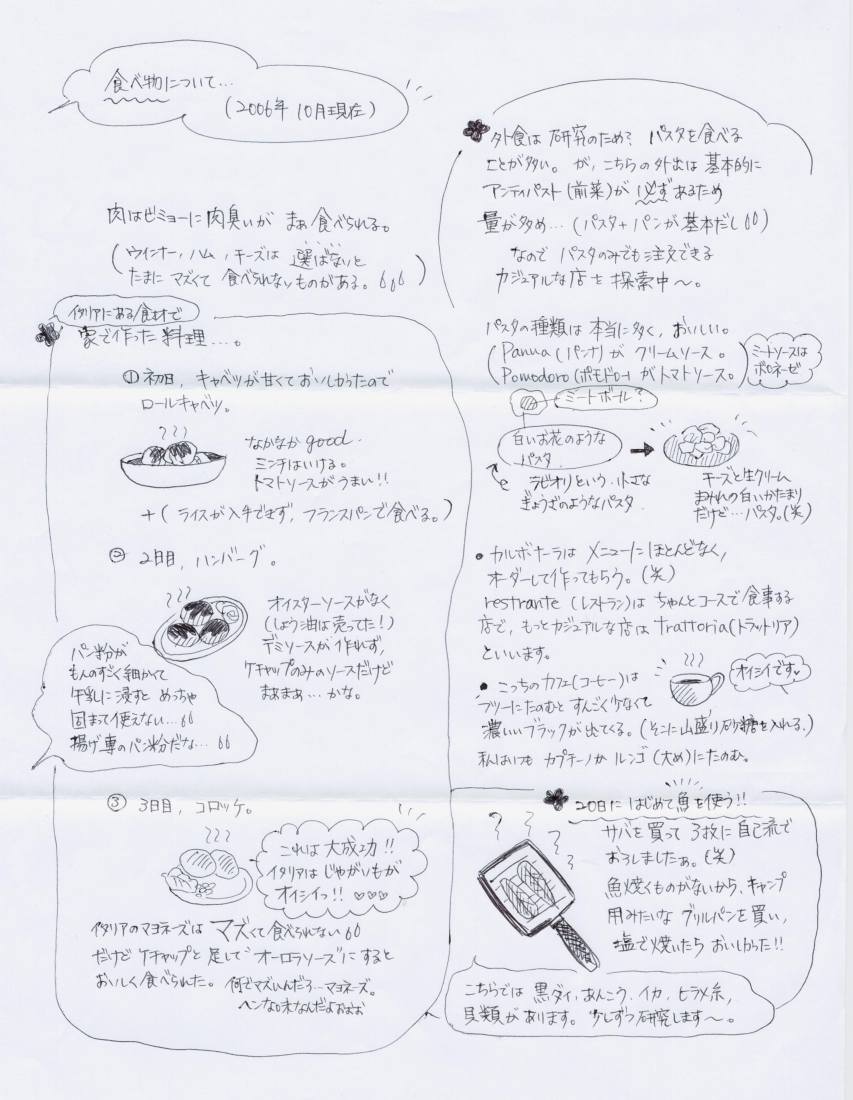 食べ物について…
(2006年 10月現在)
肉はビミョーに肉臭いが まぁ食べられる。
(ウインナー, ハム, チーズは 選ばないと
たまに マズくて 食べられないものがある。)
イタリアにある食材で
家で作った料理…。
① 初日, キャベツが甘くておいしかったので
ロールキャベツ。
なかなか good.
ミンチはいける。
トマトソースがうまい!!
+ (ライスが入手できず, フランスパンで食べる。)
② 2日目, ハンバーグ。
オイスターソースがなく
(しょう油は売ってた!)
デミソースが作れず,
ケチャップのみのソースだけど
まぁまぁ…かな。
パン粉が
ものすごく細かくて
牛乳に浸すと めっちゃ
固まって使えない…
揚げ専のパン粉だな…
③ 3日目, コロッケ。
これは 大成功!!
イタリアは じゃがいもが
オイシイっ!! ♡♡♡
イタリアのマヨネーズは マズくて食べられない
だけど ケチャップと 足して"オーロラソース"にすると
おいしく食べられた。 何でマズいんだろ…マヨネーズ。
ヘンな味なんだよぉぉぉ
外食は 研究のため? パスタを食べる
ことが多い。が, こちらの外出は 基本的に
アンティパスト(前菜)が 必ずあるため
量が多め…(パスタ+パンが基本だし)
なので パスタのみでも注文できる
カジュアルな店を 探索中〜。
パスタの種類は 本当に多く, おいしい。
(Panna (パンナ)が クリームソース。
Pomodoro (ポモドーロ)がトマトソース。)
ミートソースは
ボロネーゼ
ミートボール?
白いお花のような
パスタ.
ラビオリという, 小さな
ぎょうざのようなパスタ.
チーズと生クリーム
まみれの白いかたまり
だけど…パスタ。(笑)
• カルボナーラは メニューにほとんどなく,
オーダーして作ってもらう。(笑)
restrante (レストラン)は ちゃんとコースで食事する
店で, もっとカジュアルな店は trattoria(トラットリア)
といいます。
• こっちのカフェ(コーヒー)は
フツーにたのむと すんごく少なくて
濃いいブラックが出てくる。(そこに山盛り砂糖を入れる.)
オイシイです♡
私はいつも カプチーノか ルンゴ(大め)にたのむ。
20日に はじめて魚を使う!!
サバを買って 3枚に自己流で
おろしましたぁ。(笑)
魚焼くものがないから, キャンプ
用みたいな グリルパンを買い,
塩で焼いたら おいしかった!!
こちらでは 黒ダイ, あんこう, イカ, ヒラメ系,
貝類があります。 少しずつ研究します〜。